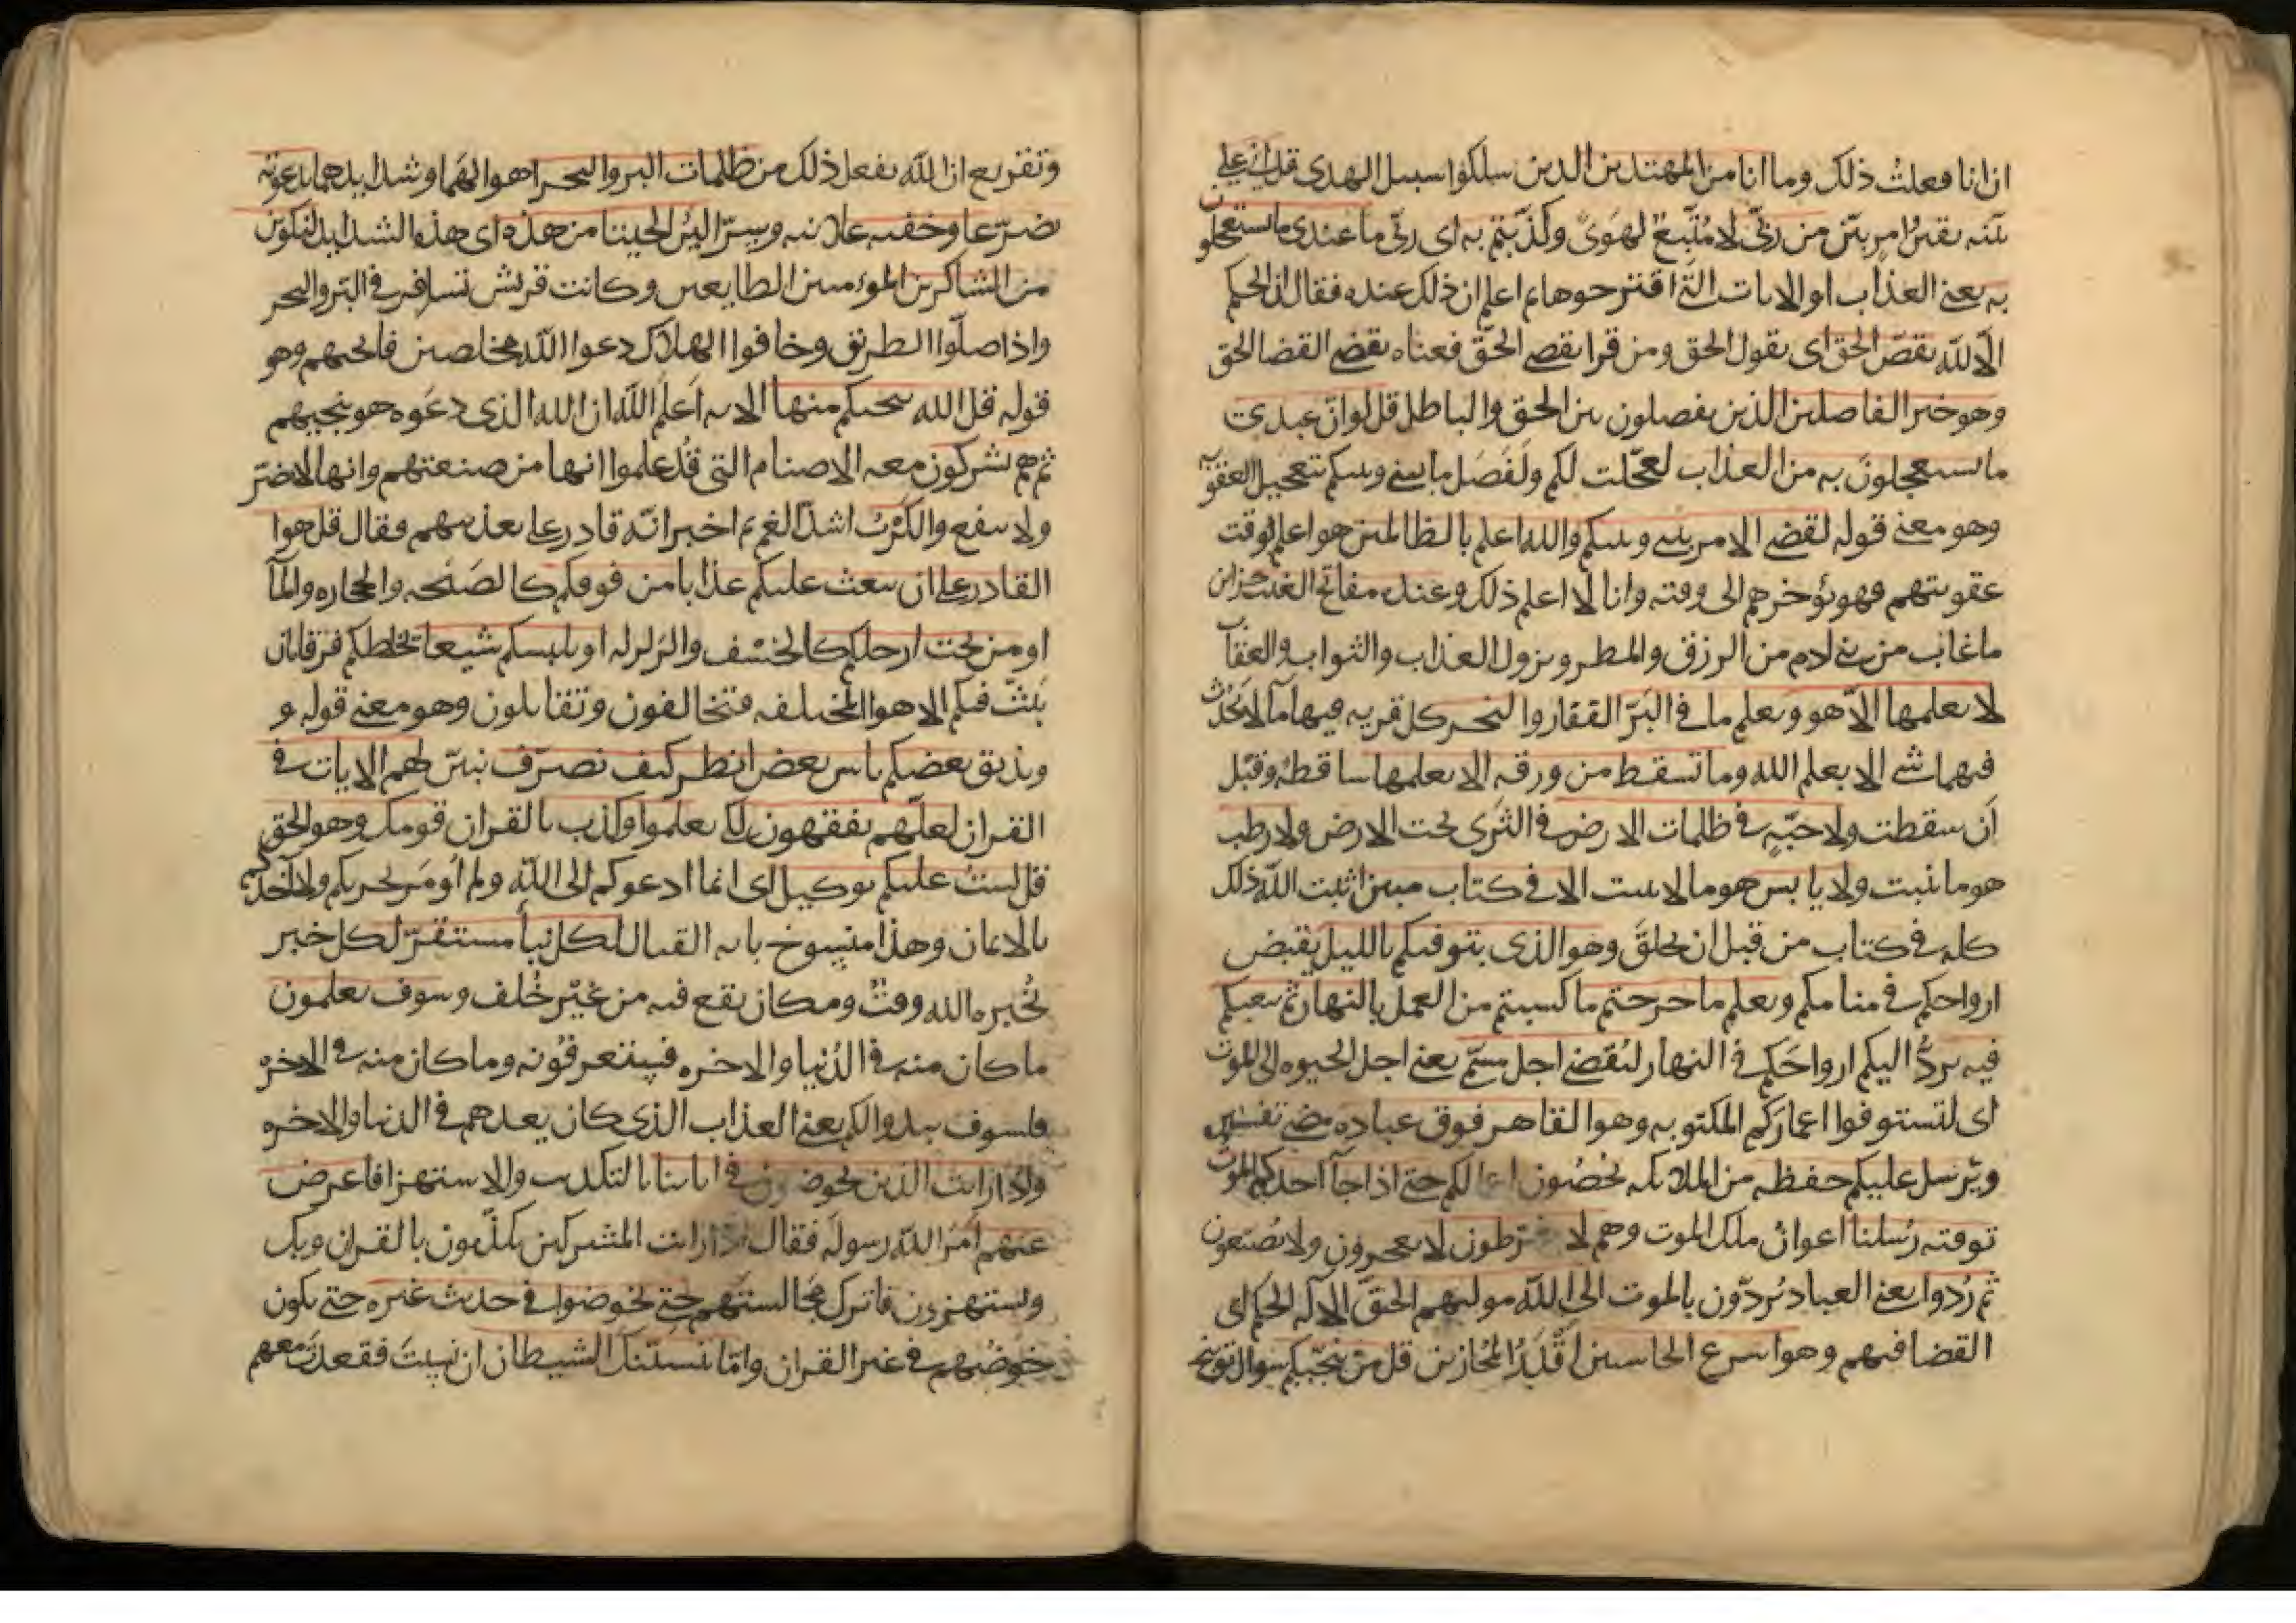 ان انا فعلت ذلك وما انا من المهتدين الذين سلكوا سبيل الهدى قل اني على
بينه يقين امر بين من ربي لا متبع لهوى وكذبتم به اى ربي ما عندى ما تستعجلون
به يعني العذاب او الايات التي اقترحوها ثم اعلم ان ذلك عنده فقال ان الحكم
الا لله يقص الحق اى يقول الحق ومن قرا يقضي الحق فمعناه يقضي القضا الحق
وهو خير الفاصلين الذين يفصلون بين الحق والباطل قل لو ان عندي
ما تستعجلون به من العذاب لعجلت لكم ولفصل ما بيني وبينكم بتعجيل العقوبه
وهو معني قوله لقضي الامر بيني وبينكم والله اعلم بالظالمين هو اعلم بوقت
عقوبتهم فهو يؤخرهم الى وقته وانا لا اعلم ذلك وعنده مفاتح الغيب خزاين
ما غاب من بني ادم من الرزق والمطر ونزول العذاب والثواب والعقاب
لا يعلمها الا هو ويعلم ما في البر القفار والبحر كل قريه فيها ما لا يحدث
فيهما شي الا بعلم الله وما تسقط من ورقه الا يعلمها ساقطه وقبل
ان سقطت ولا حبه في ظلمات الارض في الثرى تحت الارض ولا رطب
هو ما ينبت ولا يابس هو ما لا ينبت الا في كتاب مبين اثبت الله ذلك
كله في كتاب من قبل ان يخلق وهو الذى يتوفيكم بالليل يقبض
ارواحكم في منامكم ويعلم ما جرحتم ما كسبتم من العمل بالنهار ثم يبعثكم
فيه يرد اليكم ارواحكم في النهار ليقضي اجل مسمي يعني اجل الحيوه الى الموت
اى لتستوفوا اعماركم المكتوبه وهو القاهر فوق عباده مضي تفسيره
ويرسل عليكم حفظه من الملائكه يحصون اعمالكم حتي اذا جاآ احدكم الموت
توفته رسلنا اعوان ملك الموت وهم لا يفرطون لا يعجزون ولا يضيعون
ثم ردوا يعني العباد يردون بالموت الى الله موليهم الحق الا له الحكم اى
القضا فيهم وهو اسرع الحاسبين اقدر المجازين قل من ينجيكم سوال توبيخ
وتقريع ان الله يفعل ذلك من ظلمات البر والبحر اهوالهما وشدايدهما تدعونه
تضرعا وخفيه علانيه وسرا لين انجيتنا من هذه اى هذه الشدايد لنكونن
من الشاكرين المومنين الطايعين وكانت قريش تسافر في البر والبحر
واذا ضلوا الطريق وخافوا الهلاك دعوا الله مخلصين فانجيهم وهو
قوله قل الله ينجيكم منها الايه اعلم الله ان الله الذى دعوه هو ينجيهم
ثم هم يشركون معه الاصنام التي قد علموا انها من صنعتهم وانها لا تضر
ولا تنفع والكرب اشد الغم ثم اخبر انه قادر على تعذيبهم فقال قل هو
القادر على ان يبعث عليكم عذابا من فوقكم كالصيحه والحجاره والمآ
او من تحت ارجلكم كالخسف والزلزله او يلبسكم شيعا يخلطكم فرقا بان
يبث فيكم الاهوا المختلفه فتخالفون وتقاتلون وهو معني قوله و
ويذيق بعضكم باس بعض انظر كيف نصرف نبين لهم الايات في
القران لعلهم يفقهون لكي يعلموا وكذب بالقران قومك وهو الحق
قل لست عليكم بوكيل اى انما ادعوكم الى الله ولم اومر بحربكم ولا اخذكم
بالايمان وهذا منسوخ بايه القتال لكل نبا مستقر لكل خبر
يخبره الله وقت ومكان يقع فيه من غير خلف وسوف تعلمون
ما كان منه في الدنيا والاخره فستعرفونه وما كان منه في الاخره
فلسوف يبدوا لكم يعني العذاب الذى كان يعدهم في الدنيا والاخره
واذا رايت الذين يخوضون في اياتنا بالتكذيب والاستهزا فاعرض
عنهم امر الله رسوله فقال اذا رايت المشركين يكذبون بالقران وبك
ويستهزون فاترك مجالستهم حتي يخوضوا في حديث غيره حتي يكون
خوضهم في غير القران واما ينسينك الشيطان ان نسيت فقعدت معهم